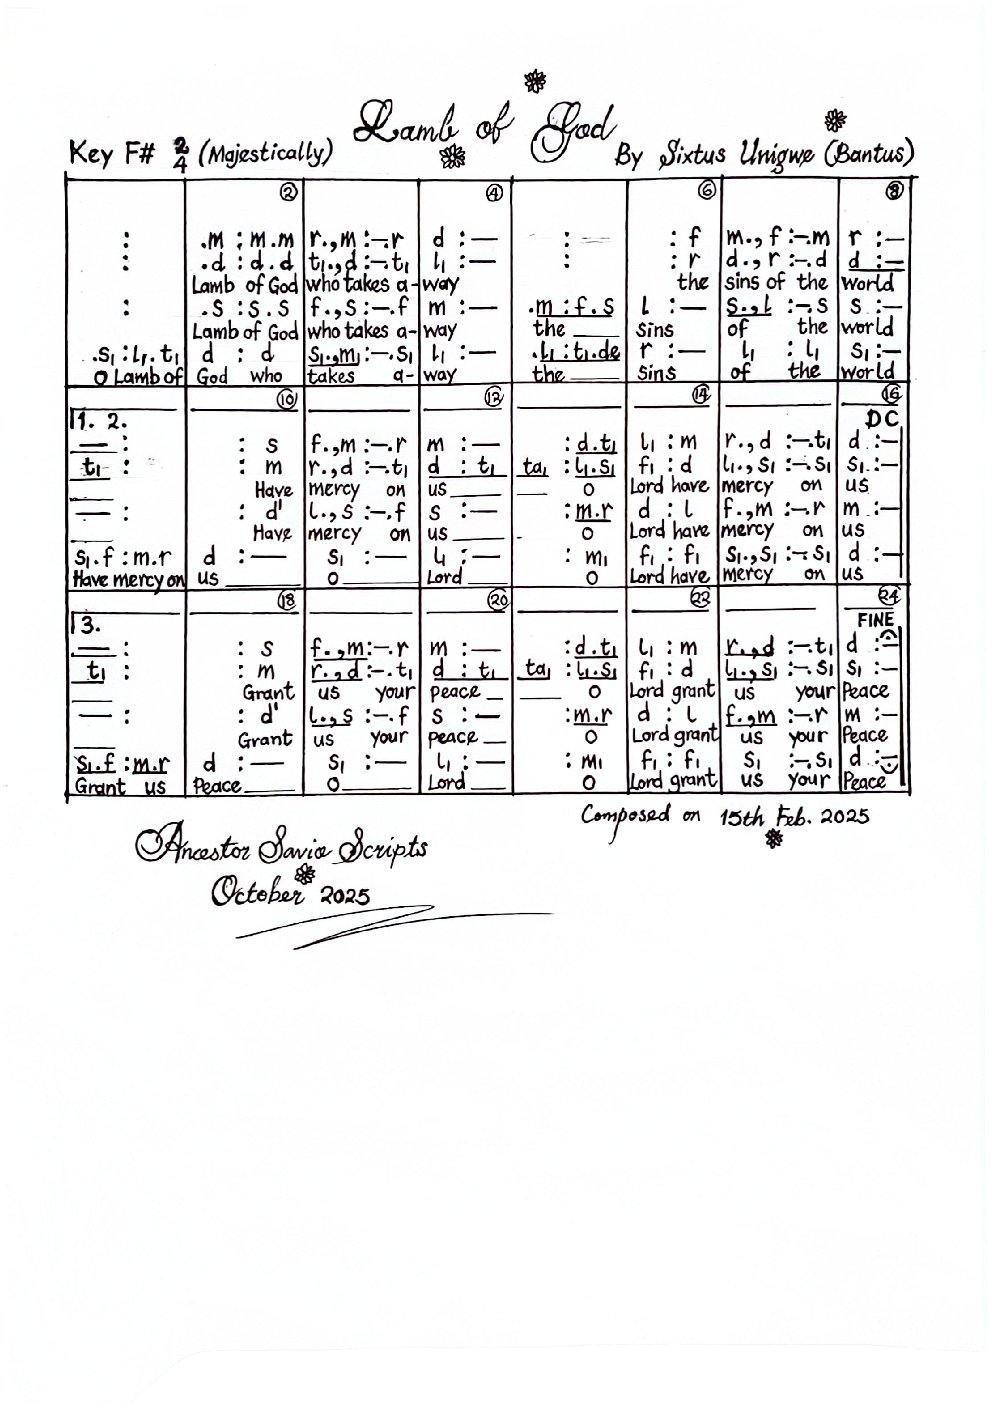 Lamb of God
Key F# 2/4 (Majestically) By Sixtus Unigwe (Bantus)
② ④ ⑥ ⑧
: .m : m.m r.,m :–.r d :— : : f m., f :–.m r :–
: .d : d.d t₁.,d :–.t₁ l₁ :— : : r d., r :–.d d :–
Lamb of God who takes a- way the sins of the world
: .s : s.s f.,s :–.f m :— .m : f.s l :— s.,l :–.s s :–
Lamb of God who takes a- way the ___ sins of the world
.s₁ : l₁.t₁ d : d s₁.,m₁ :–.s₁ l₁ :— .l₁ : t₁.de r :— l₁ : l₁ s₁ :–
O Lamb of God who takes a- way the ___ sins of the world
⑩ ⑫ ⑭ ⑯
1. 2. DC
— : : s f.,m :–.r m :— : d.t₁ l₁ : m r.,d :–.t₁ d :–
t₁ : : m r.,d :–.t₁ d : t₁ ta₁ : l₁.s₁ f₁ : d l₁.,s₁ :–.s₁ s₁ :–
Have mercy on us ___ O Lord have mercy on us
— : : d' l.,s :–.f s :— : m.r d : l f.,m :–.r m :–
Have mercy on us ___ O Lord have mercy on us
s₁.f : m.r d :— s₁ :— l₁ :— : m₁ f₁ : f₁ s₁.,s₁ :–.s₁ d :–
Have mercy on us ___ O ___ Lord ___ O Lord have mercy on us
⑱ ⑳ ㉒ ㉔
3. FINE
— : : s f.,m :–.r m :— : d.t₁ l₁ : m r.,d :–.t₁ d :–
t₁ : : m r.,d :–.t₁ d : t₁ ta₁ : l₁.s₁ f₁ : d l₁.,s₁ :–.s₁ s₁ :–
Grant us your peace ___ O Lord grant us your Peace
— : : d' l.,s :–.f s :— : m.r d : l f.,m :–.r m :–
Grant us your peace ___ O Lord grant us your Peace
s₁.f : m.r d :— s₁ :— l₁ :— : m₁ f₁ : f₁ s₁ :–.s₁ d :–
Grant us Peace ___ O ___ Lord ___ O Lord grant us your Peace
Composed on 15th Feb. 2025
Ancestor Savio Scripts
October 2025